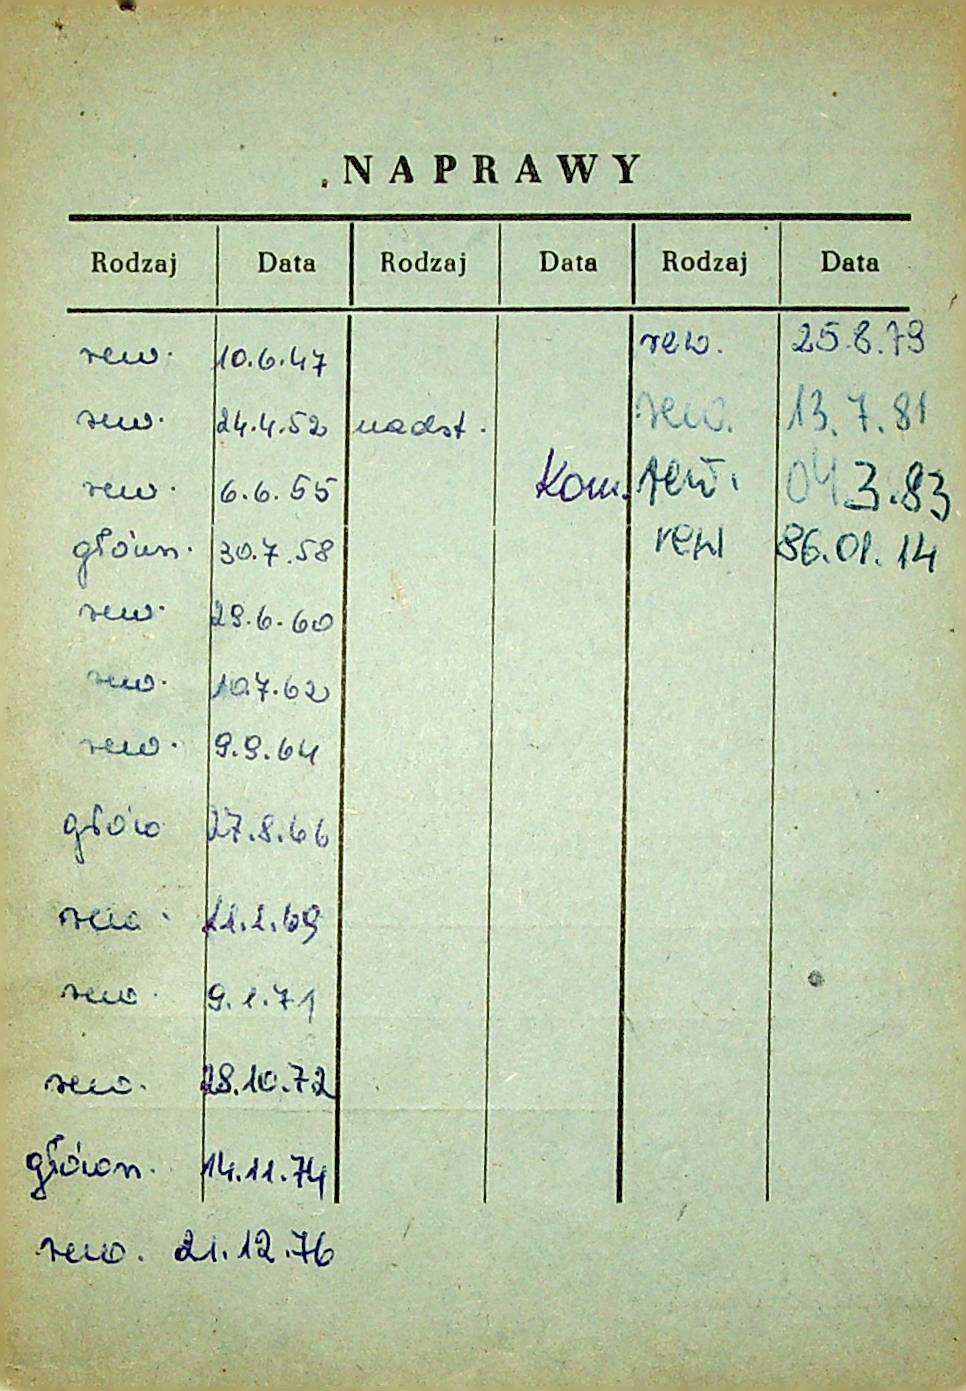 NAPRAWY
Rodzaj Data Rodzaj Data Rodzaj Data
rew. 10.6.47 rew. 25.8.79
rew. 24.4.52 nadst. rew. 13.7.81
rew. 6.6.55 Kom. rew. 04.3.83
główn. 30.7.58 rew 86.01.14
rew. 29.6.60
rew. 10.7.62
rew. 9.9.64
głów 27.8.66
rew. 11.1.69
rew. 9.1.71
rew. 28.10.72
główn. 14.11.74
rew. 21.12.76